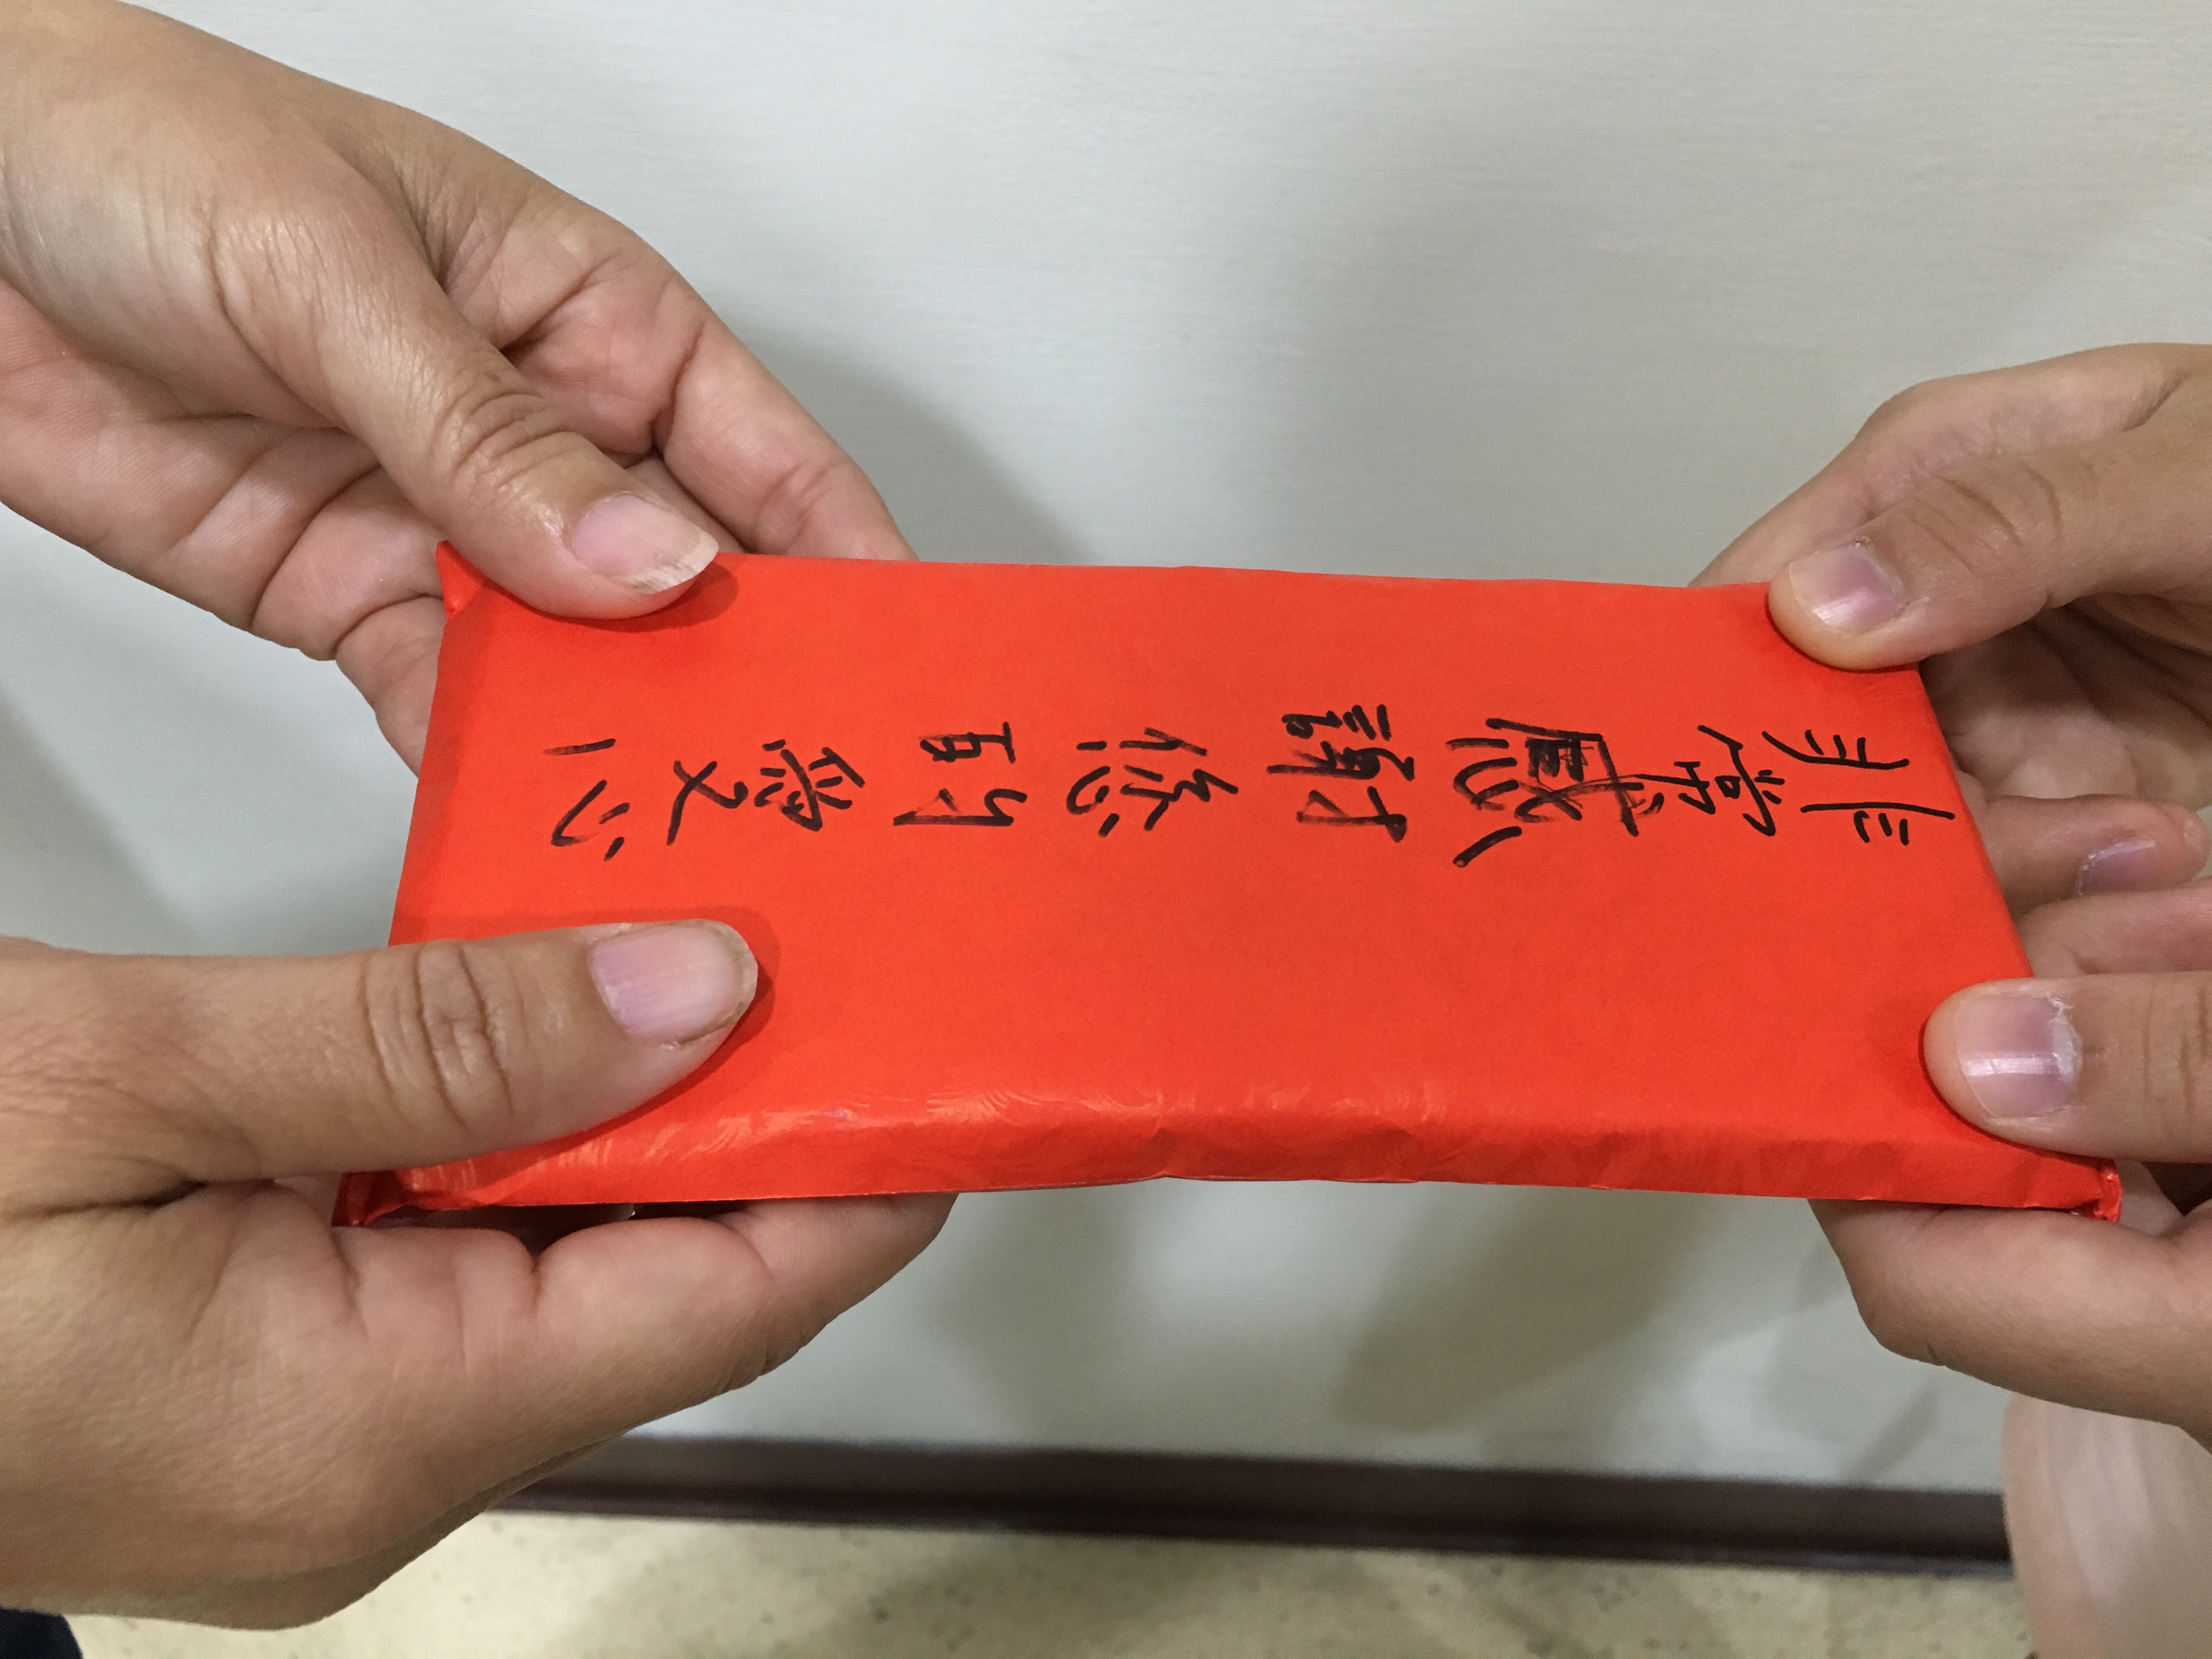 非常感謝您的愛心